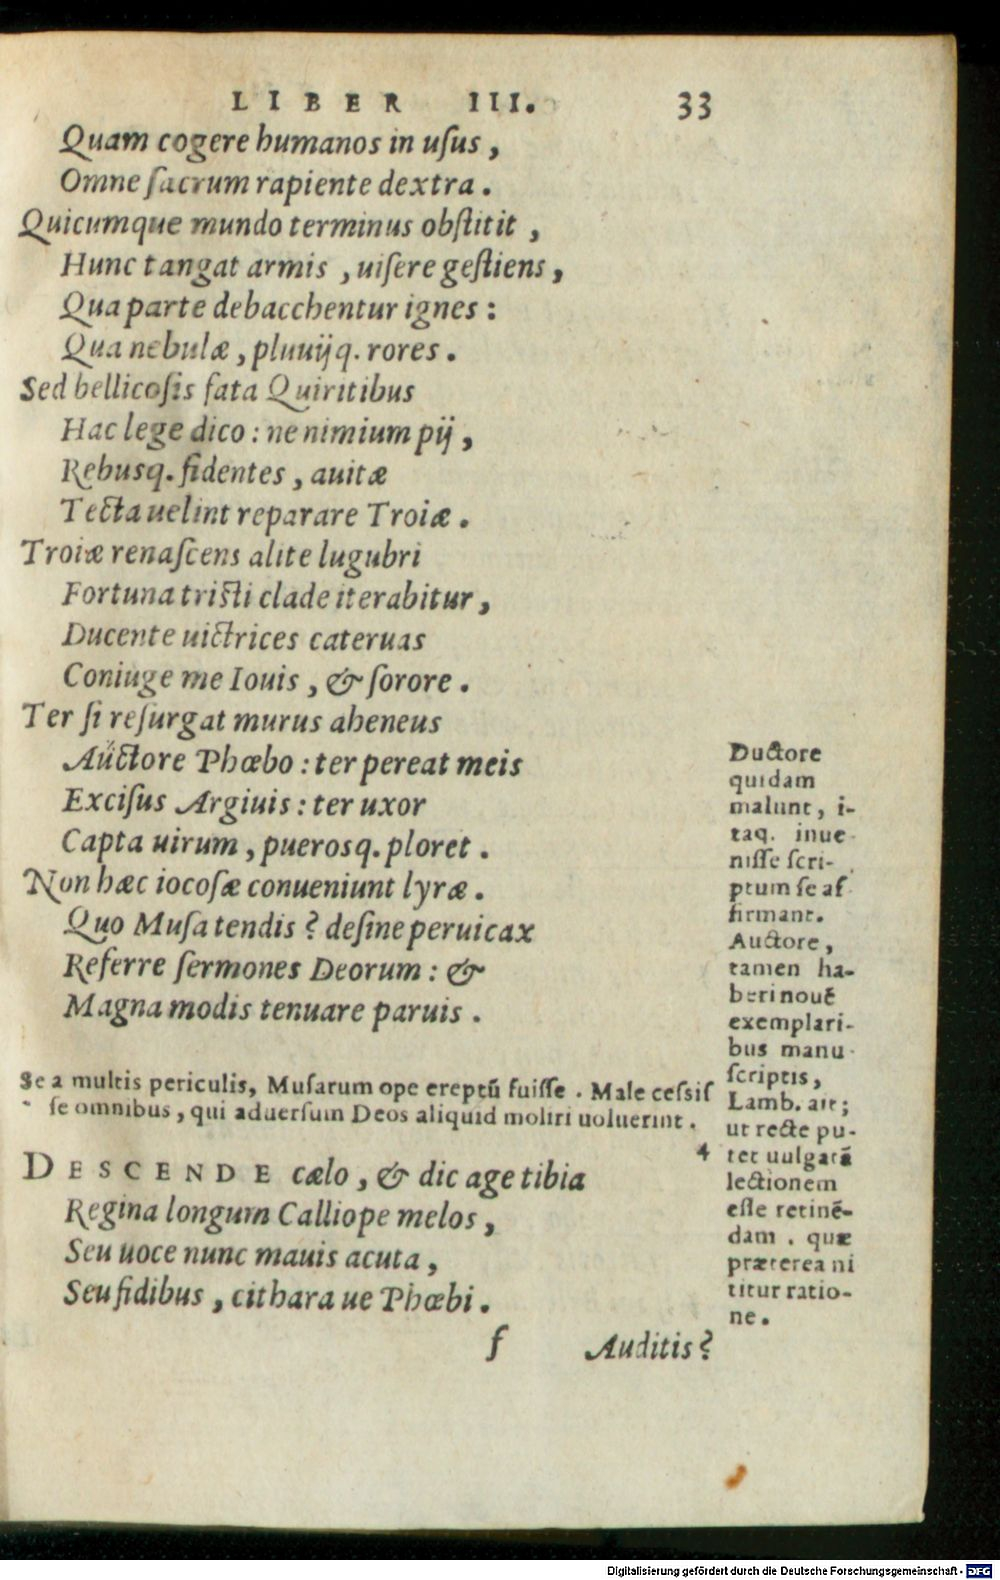 LIBER III. 33
Quam cogere humanos in uſus,
Omne ſacrum rapiente dextra.
Quicumque mundo terminus obſtitit,
Hunc tangat armis, uiſere geſtiens,
Qua parte debacchentur ignes:
Qua nebulæ, pluuijq. rores.
Sed bellicoſis fata Quiritibus
Hac lege dico: ne nimium pij,
Rebusq. fidentes, auitæ
Tecta uelint reparare Troiæ.
Troiæ renaſcens alite lugubri
Fortuna triſti clade iterabitur,
Ducente uictrices cateruas
Coniuge me Iouis, & ſorore.
Ter ſi reſurgat murus aheneus
Auctore Phœbo: ter pereat meis
Exciſus Argiuis: ter uxor
Capta uirum, puerosq. ploret.
Non hæc iocoſæ conueniunt lyræ.
Quo Muſa tendis? deſine peruicax
Referre ſermones Deorum: &
Magna modis tenuare paruis.
Se a multis periculis, Muſarum ope ereptū fuiſſe. Male ceſſiſ
ſe omnibus, qui aduerſum Deos aliquid moliri uoluerint.
4
DESCENDE cælo, & dic age tibia
Regina longum Calliope melos,
Seu uoce nunc mauis acuta,
Seu fidibus, cithara ue Phœbi.
f Auditis?
Ductore
quidam
malunt, i-
taq. inue
niſſe ſcri-
ptum ſe af
firmant.
Auctore,
tamen ha-
beri nouē
exemplari-
bus manu
ſcriptis,
Lamb. ait;
ut recte pu-
tet uulgatā
lectionem
eſſe retinē-
dam. quæ
præterea ni
titur ratio-
ne.
Digitalisierung gefördert durch die Deutsche Forschungsgemeinschaft - DFG